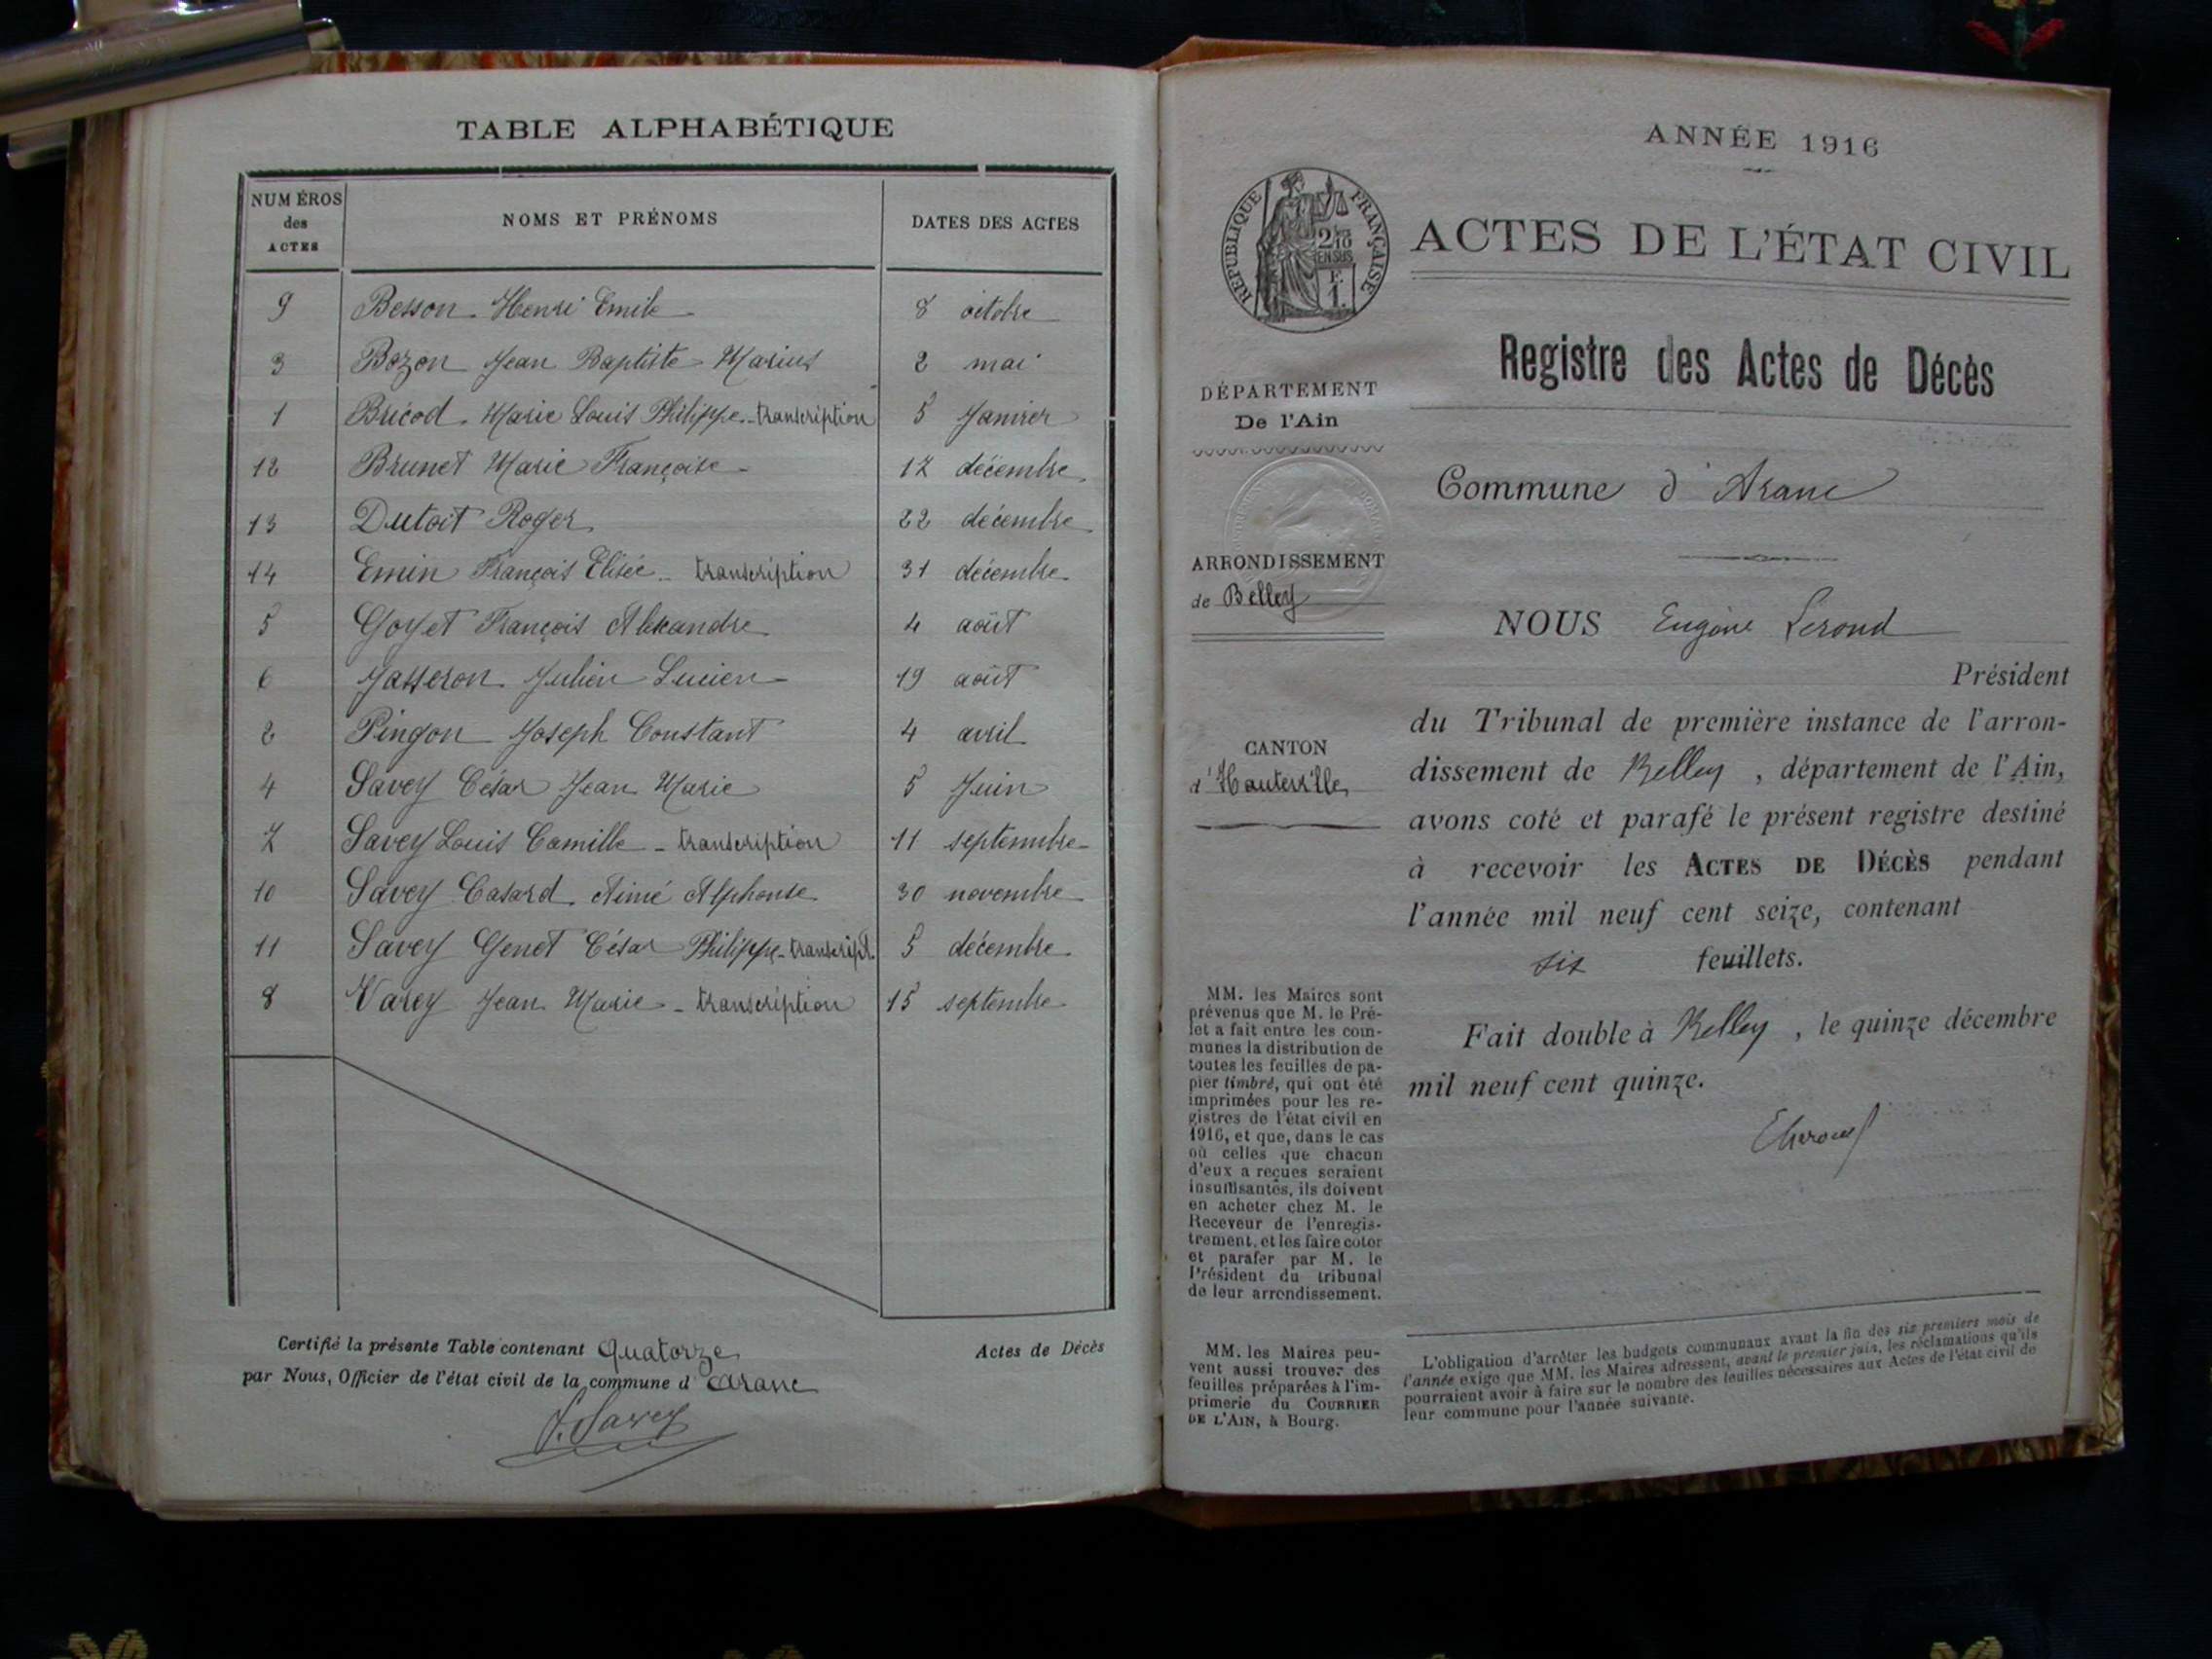 TABLE ALPHABÉTIQUE
NUMÉROS des ACTES NOMS ET PRÉNOMS DATES DES ACTES
9 Besson Henri Emile 8 octobre
3 Bozon Jean Baptiste Marius 2 mai
1 Bricod Marie Louis Philippe - transcription 5 Janvier
12 Brunet Marie Françoise 17 décembre
13 Dutoit Roger 22 décembre
14 Emin François Elisée - transcription 31 décembre
5 Goyet François Alexandre 4 août
6 Jasseron Julien Lucien 19 août
2 Pingon Joseph Constant 4 avril
4 Savey César Jean Marie 5 Juin
7 Savey Louis Camille - transcription 11 septembre
10 Savey Casard Aimé Alphonse 30 novembre
11 Savey Genet César Philippe - transcript. 5 décembre
8 Varey Jean Marie - transcription 15 septembre
Certifié la présente Table contenant Quatorze Actes de Décès
par Nous, Officier de l'état civil de la commune d'Aranc
F. Savey
ANNÉE 1916
RÉPUBLIQUE FRANÇAISE
ACTES DE L'ÉTAT CIVIL
Registre des Actes de Décès
DÉPARTEMENT
De l'Ain
Commune d'Aranc
ARRONDISSEMENT
de Belley
NOUS Eugène Lerond
Président
du Tribunal de première instance de l'arron-
dissement de Belley, département de l'Ain,
avons coté et parafé le présent registre destiné
à recevoir les ACTES DE DÉCÈS pendant
l'année mil neuf cent seize, contenant
six feuillets.
Fait double à Belley, le quinze décembre
mil neuf cent quinze.
CANTON
d'Hauteville
MM. les Maires sont
prévenus que M. le Pré-
fet a fait entre les com-
munes la distribution de
toutes les feuilles de pa-
pier timbré, qui ont été
imprimées pour les re-
gistres de l'état civil en
1916, et que, dans le cas
où celles que chacun
d'eux a reçues seraient
insuffisantes, ils doivent
en acheter chez M. le
Receveur de l'enregis-
trement, et les faire coter
et parafer par M. le
Président du tribunal
de leur arrondissement.
MM. les Maires peu-
vent aussi trouver des
feuilles préparées à l'im-
primerie du COURRIER
DE L'AIN, à Bourg.
L'obligation d'arrêter les budgets communaux avant la fin des six premiers mois de
l'année exige que MM. les Maires adressent, avant le premier juin, les réclamations qu'ils
pourraient avoir à faire sur le nombre des feuilles nécessaires aux Actes de l'état civil de
leur commune pour l'année suivante.